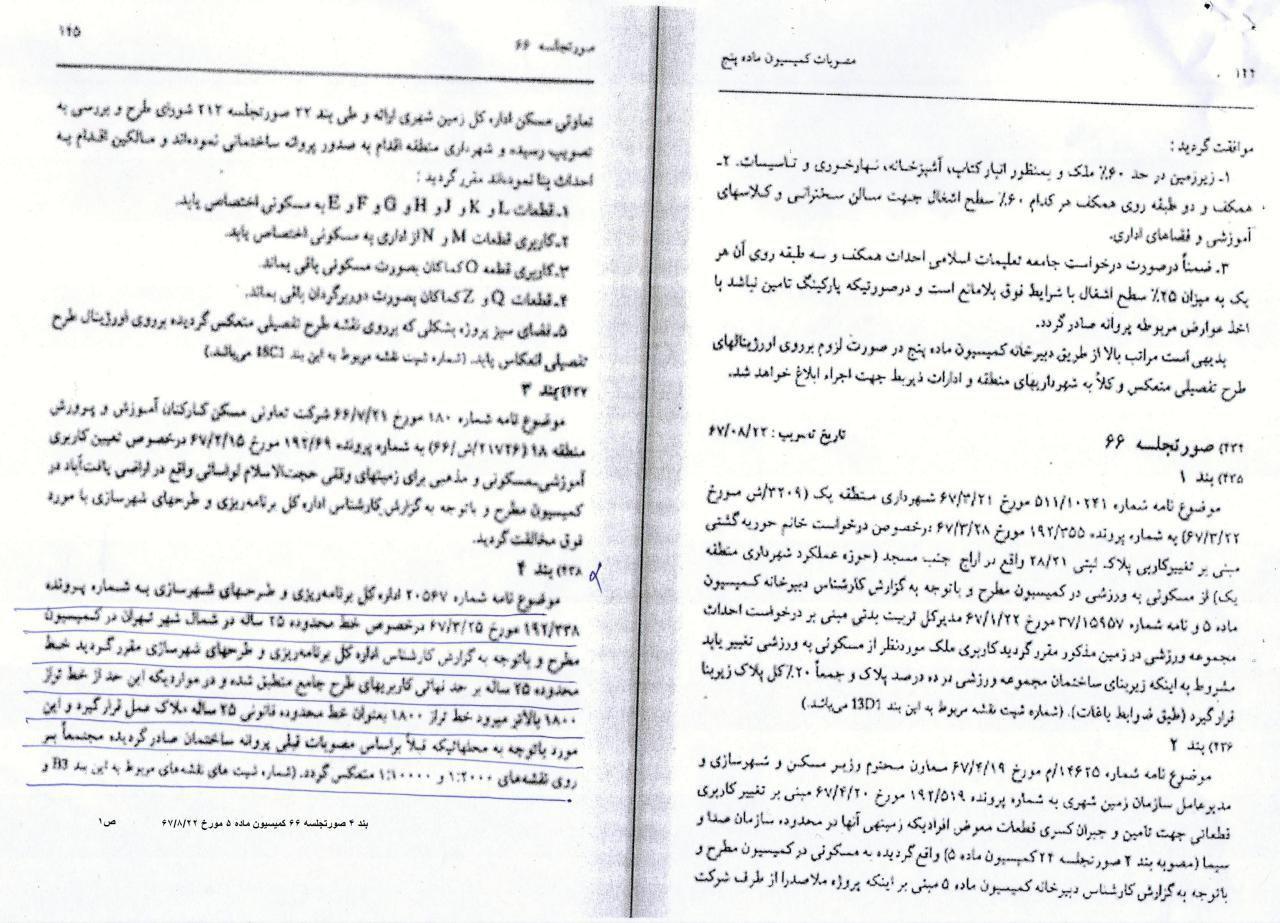 ۱۴۴
مصوبات کمیسیون ماده پنج
موافقت گردید :
۱ـ زیرزمین در حد ۶۰٪ ملک و بمنظور انبار کتاب، آشپزخانه، نهارخوری و تأسیسات. ۲ـ
همکف و دو طبقه روی همکف هر کدام ۶۰٪ سطح اشغال جهت سالن سخنرانی و کلاسهای
آموزشی و فضاهای اداری.
۳ـ ضمناً درصورت درخواست جامعه تعلیمات اسلامی احداث همکف و سه طبقه روی آن هر
یک به میزان ۲۵٪ سطح اشغال با شرایط فوق بلامانع است و درصورتیکه پارکینگ تامین نباشد با
اخذ عوارض مربوطه پروانه صادر گردد.
بدیهی است مراتب بالا از طریق دبیرخانه کمیسیون ماده پنج در صورت لزوم برروی اورژینالهای
طرح تفصیلی منعکس و کلاً به شهرداریهای منطقه و ادارات ذیربط جهت اجراء ابلاغ خواهد شد.
۴۳۴) صورتجلسه ۶۶
تاریخ تصویب : ۶۷/۰۸/۲۲
۴۳۵) بند ۱
موضوع نامه شماره ۵۱۱/۱۰۲۴۱ مورخ ۶۷/۳/۲۱ شهرداری منطقه یک (۳۲۰۹/ش مورخ
۶۷/۳/۲۲) به شماره پرونده ۱۹۲/۳۵۵ مورخ ۶۷/۳/۲۸ درخصوص درخواست خانم حوریه گشتی
مبنی بر تغییرکاربی پلاک ثبتی ۲۸/۲۱ واقع در اراج جنب مسجد (حوزه عملکرد شهرداری منطقه
یک) از مسکونی به ورزشی در کمیسیون مطرح و باتوجه به گزارش کارشناس دبیرخانه کمیسیون
ماده ۵ و نامه شماره ۳۷/۱۵۹۵۷ مورخ ۶۷/۱/۲۲ مدیرکل تربیت بدنی مبنی بر درخواست احداث
مجموعه ورزشی در زمین مذکور مقرر گردید کاربری ملک موردنظر از مسکونی به ورزشی تغییر یابد
مشروط به اینکه زیربنای ساختمان مجموعه ورزشی در ده درصد پلاک و جمعاً ۲۰٪ کل پلاک زیربنا
قرار گیرد (طبق ضوابط باغات). (شماره ثبت نقشه مربوط به این بند 13D1 می‌باشد.)
۴۳۶) بند ۲
موضوع نامه شماره ۱۴۶۲۵/م مورخ ۶۷/۴/۱۹ معاون محترم وزیر مسکن و شهرسازی و
مدیرعامل سازمان زمین شهری به شماره پرونده ۱۹۲/۵۱۹ مورخ ۶۷/۴/۲۰ مبنی بر تغییر کاربری
قطعاتی جهت تأمین و جبران کسری قطعات معوض افرادیکه زمینهی آنها در محدوده سازمان صدا و
سیما (مصوبه بند ۲ صورتجلسه ۲۴ کمیسیون ماده ۵) واقع گردیده به مسکونی در کمیسیون مطرح و
باتوجه به گزارش کارشناس دبیرخانه کمیسیون ماده ۵ مبنی بر اینکه پروژه ملاصدرا از طرف شرکت
۱۴۵
صورتجلسه ۶۶
تعاونی مسکن اداره کل زمین شهری ارائه و طی بند ۲۲ صورتجلسه ۲۱۲ شورای طرح و بررسی به
تصویب رسیده و شهرداری منطقه اقدام به صدور پروانه ساختمانی نموده‌اند و مالکین اقدام به
احداث بنا نموده‌اند مقرر گردید :
۱ـ قطعات L و K و J و H و G و F و E به مسکونی اختصاص یابد.
۲ـ کاربری قطعات M و N از اداری به مسکونی اختصاص یابد.
۳ـ کاربری قطعه O کماکان بصورت مسکونی باقی بماند.
۴ـ قطعات Q و Z کماکان بصورت دوربرگردان باقی بماند.
۵ـ فضای سبز پروژه بشکلی که برروی نقشه طرح تفصیلی منعکس گردیده برروی اورژینال طرح
تفصیلی انعکاس یابد. (شماره ثبت نقشه مربوط به این بند 18C1 می‌باشد.)
۴۳۷) بند ۳
موضوع نامه شماره ۱۸۰ مورخ ۶۶/۷/۲۱ شرکت تعاونی مسکن کارکنان آموزش و پرورش
منطقه ۱۸ (۲۱۷۲۶/ش/۶۶) به شماره پرونده ۱۹۲/۶۹ مورخ ۶۷/۲/۱۵ درخصوص تعیین کاربری
آموزشی‌ـ‌مسکونی و مذهبی برای زمینهای وقفی حجت‌الاسلام لواسانی واقع در اراضی یافت‌آباد در
کمیسیون مطرح و باتوجه به گزارش کارشناس اداره کل برنامه‌ریزی و طرحهای شهرسازی با مورد
فوق مخالفت گردید.
۴۳۸) بند ۴
موضوع نامه شماره ۲۰۵۶۷ اداره کل برنامه‌ریزی و طرحهای شهرسازی به شماره پرونده
۱۹۲/۳۳۸ مورخ ۶۷/۳/۲۵ درخصوص خط محدوده ۲۵ ساله در شمال شهر تهران در کمیسیون
مطرح و باتوجه به گزارش کارشناس اداره کل برنامه‌ریزی و طرحهای شهرسازی مقرر گردید خط
محدوده ۲۵ ساله بر حد نهائی کاربریهای طرح جامع منطبق شده و در مواردیکه این حد از خط تراز
۱۸۰۰ بالاتر میرود خط تراز ۱۸۰۰ بعنوان خط محدوده قانونی ۲۵ ساله ملاک عمل قرار گیرد و این
مورد باتوجه به محلهائیکه قبلاً براساس مصوبات قبلی پروانه ساختمان صادر گردیده مجتمعاً بر
روی نقشه‌های ۱:۲۰۰۰ و ۱:۱۰۰۰۰ منعکس گردد. (شماره ثبت های نقشه‌های مربوط به این بند B3 و
بند ۴ صورتجلسه ۶۶ کمیسیون ماده ۵ مورخ ۶۷/۸/۲۲ ص۱